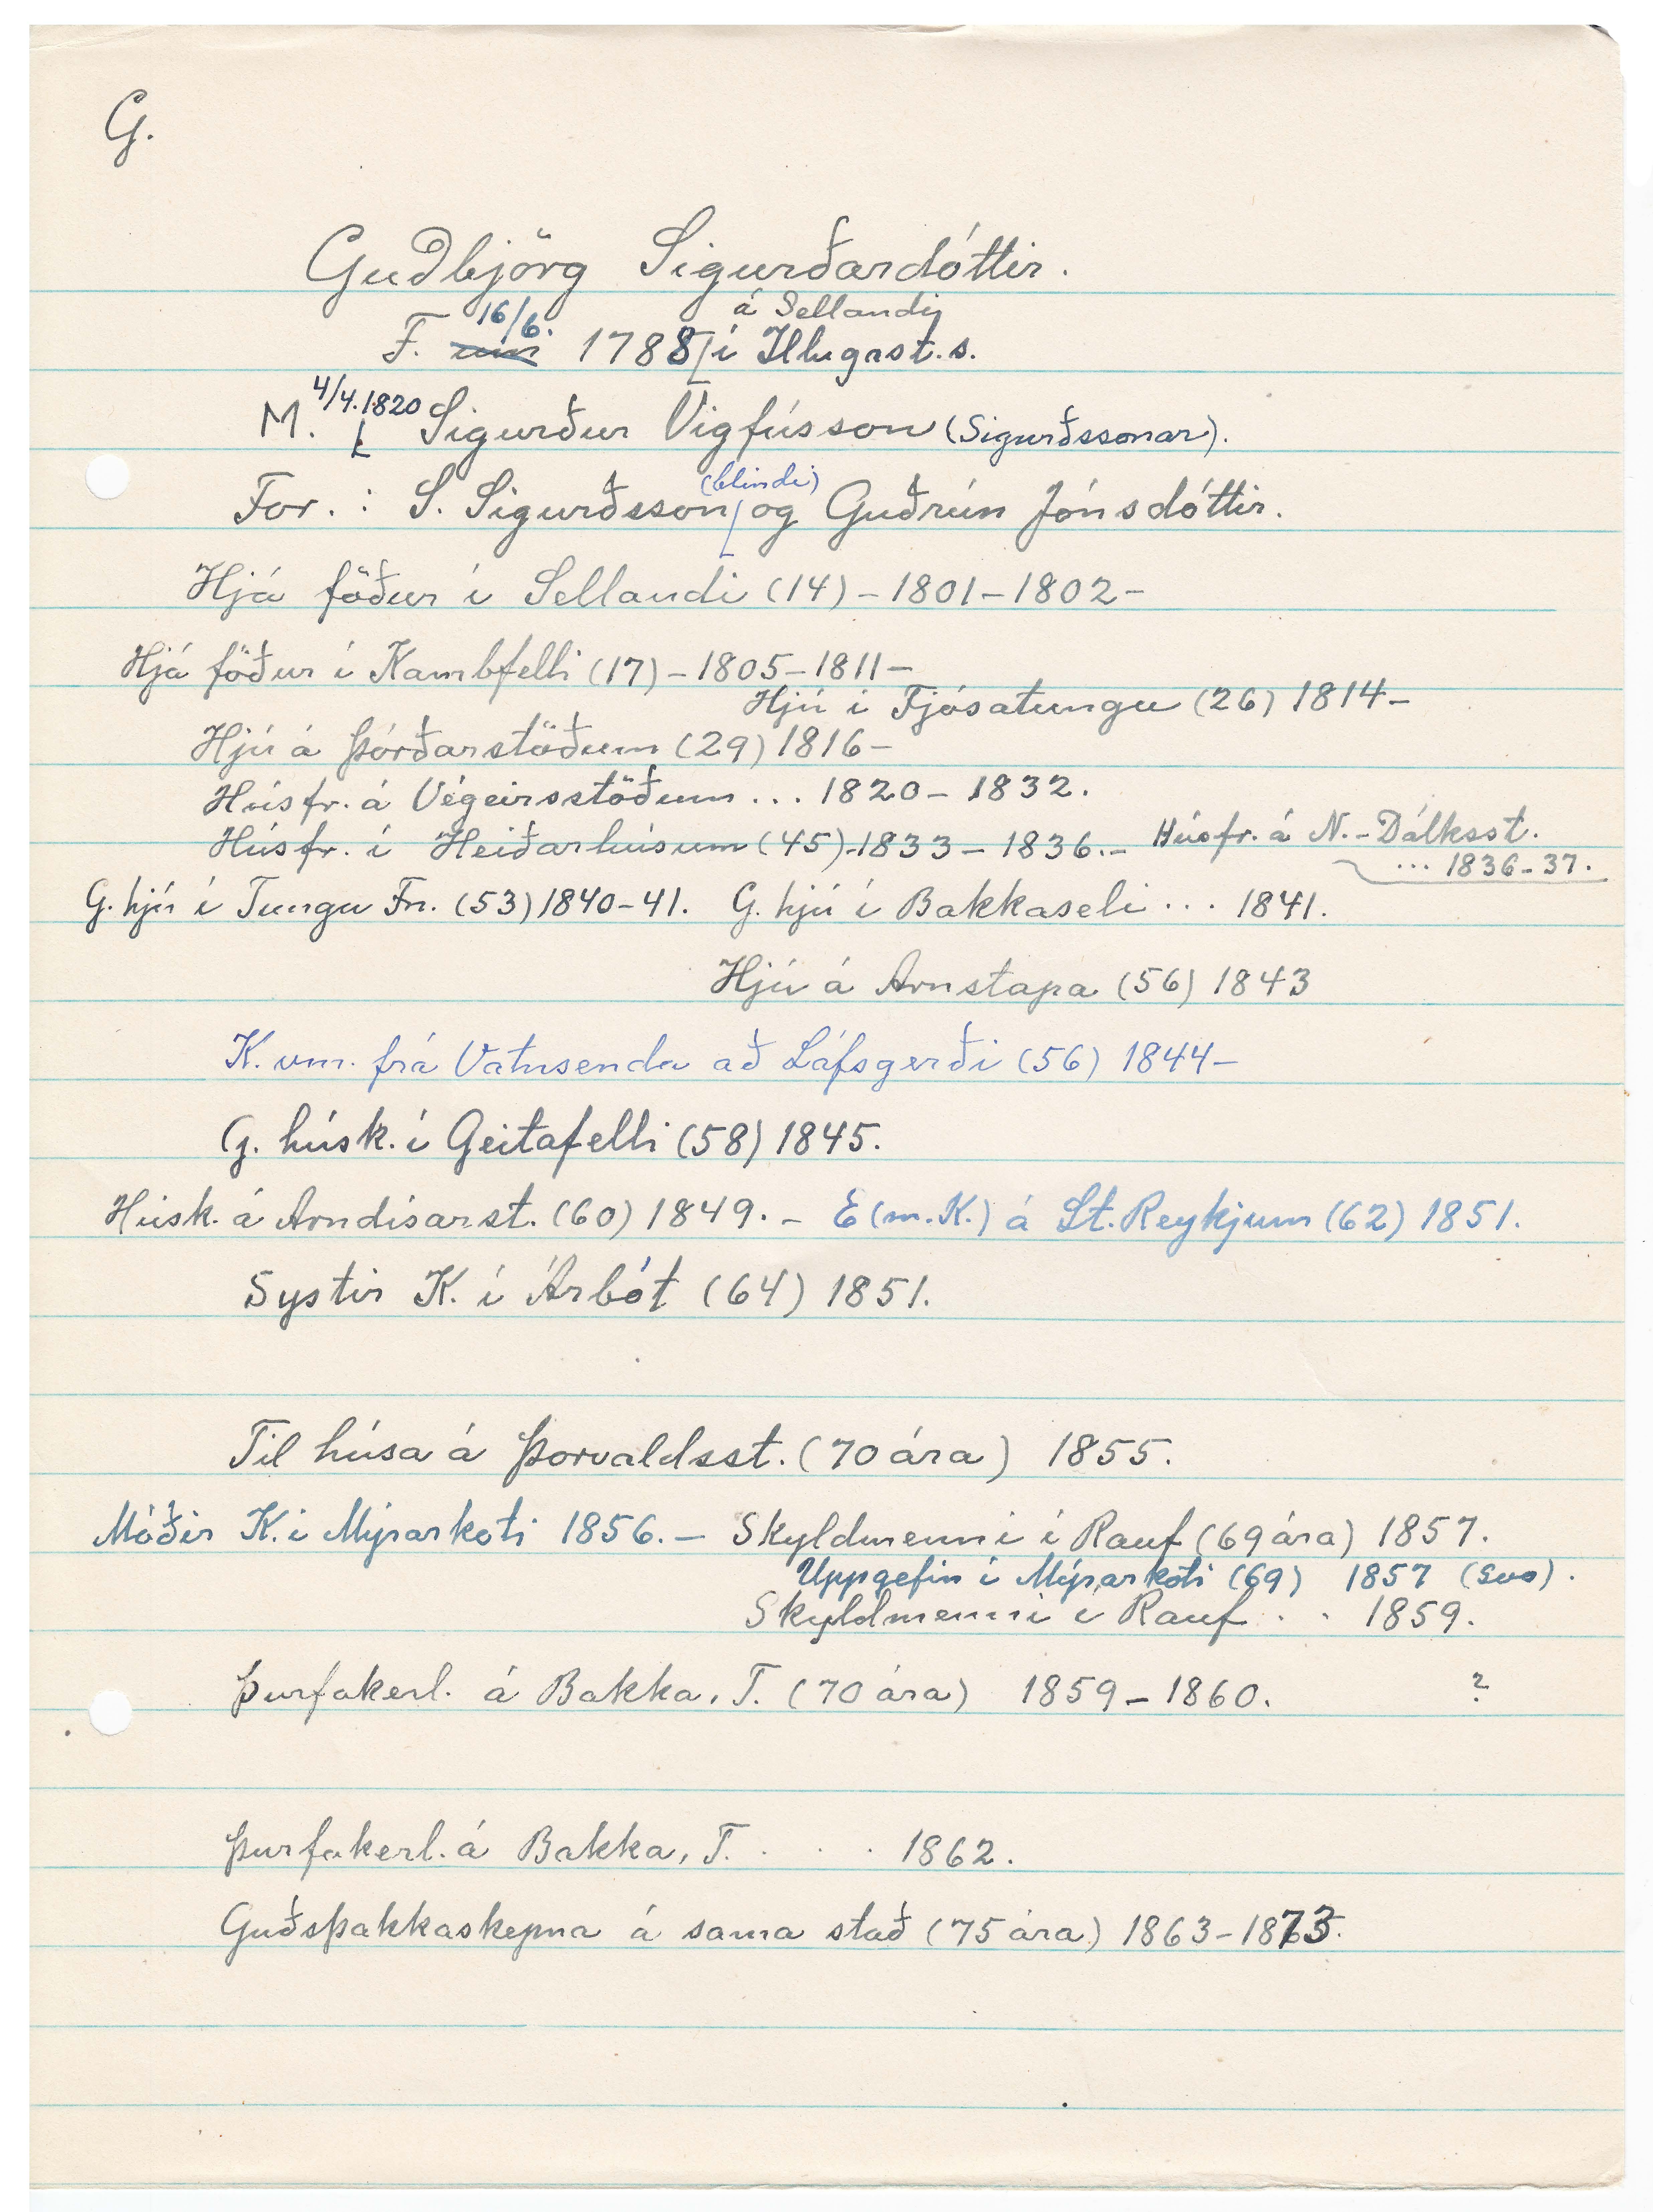 G.
Guðbjörg Sigurðardóttir.
16/6. á Sellandi
F. 1788 í Illugast.s.
M. 4/4.1820 Sigurður Vigfússon (Sigurðssonar).
For.: S. Sigurðsson (blindi) og Guðrún Jónsdóttir.
Hjá föður í Sellandi (14) - 1801 - 1802 -
Hjá föður í Kambfelli (17) - 1805 - 1811 -
Hjú í Fjósatungu (26) 1814 -
Hjú á Þórðarstöðum (29) 1816 -
Húsfr. á Végeirsstöðum ... 1820 - 1832.
Húsfr. í Heiðarhúsum (45) - 1833 - 1836. - Húsfr. á N.-Dálksst.
... 1836-37.
G. hjú í Tungu Fn. (53) 1840-41. G. hjú í Bakkaseli ... 1841.
Hjú á Arnstapa (56) 1843
K. vm. frá Vatnsenda að Láfsgerði (56) 1844 -
G. húsk. í Geitafelli (58) 1845.
Húsk. á Arndísarst. (60) 1849. - E (m.K.) á St. Reykjum (62) 1851.
Systir K. í Árbót (64) 1851.
Til húsa á Þorvaldsst. (70 ára) 1855.
Móðir K. í Mýrarkoti 1856. - Skyldmenni í Rauf (69 ára) 1857.
Uppgefin í Mýrarkoti (69) 1857 (svo).
Skyldmenni í Rauf . . 1859.
Þurfakerl. á Bakka, T. (70 ára) 1859 - 1860. ?
Þurfakerl. á Bakka, T. . . . 1862.
Guðsþakkaskepna á sama stað (75 ára) 1863 - 1873.